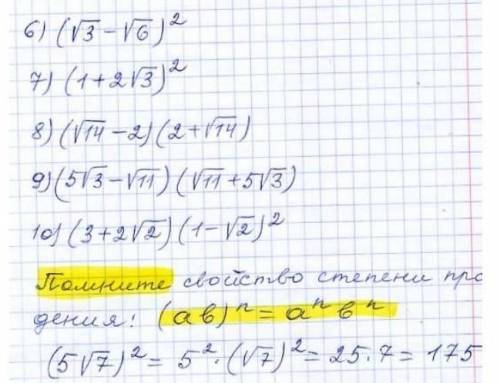 6) (√3 - √6)²
7) (1 + 2√3)²
8) (√14 - 2)(2 + √14)
9) (5√3 - √11)(√11 + 5√3)
10) (3 + 2√2)(1 - √2)²
Помните свойство степени про
дения: (ab)ⁿ = aⁿbⁿ
(5√7)² = 5² · (√7)² = 25 · 7 = 175